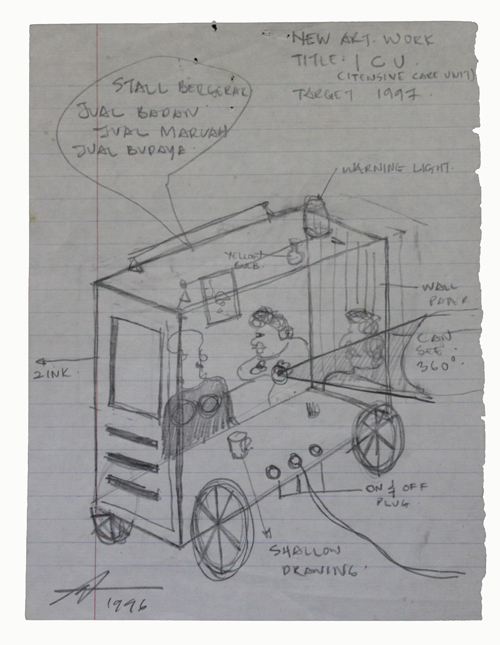 NEW ART. WORK
TITLE: I C U.
(ITENSIVE CARE UNIT)
TARGET 1997.
STALL BERGERAK
JUAL BADAN
JUAL MARUAH
JUAL BUDAYA.
WARNING LIGHT.
YELLOW
BULB.
WALL
PAPER
CAN
SEE
360°.
ZINK.
ON & OFF
PLUG
SHALLOW
DRAWING.
1996